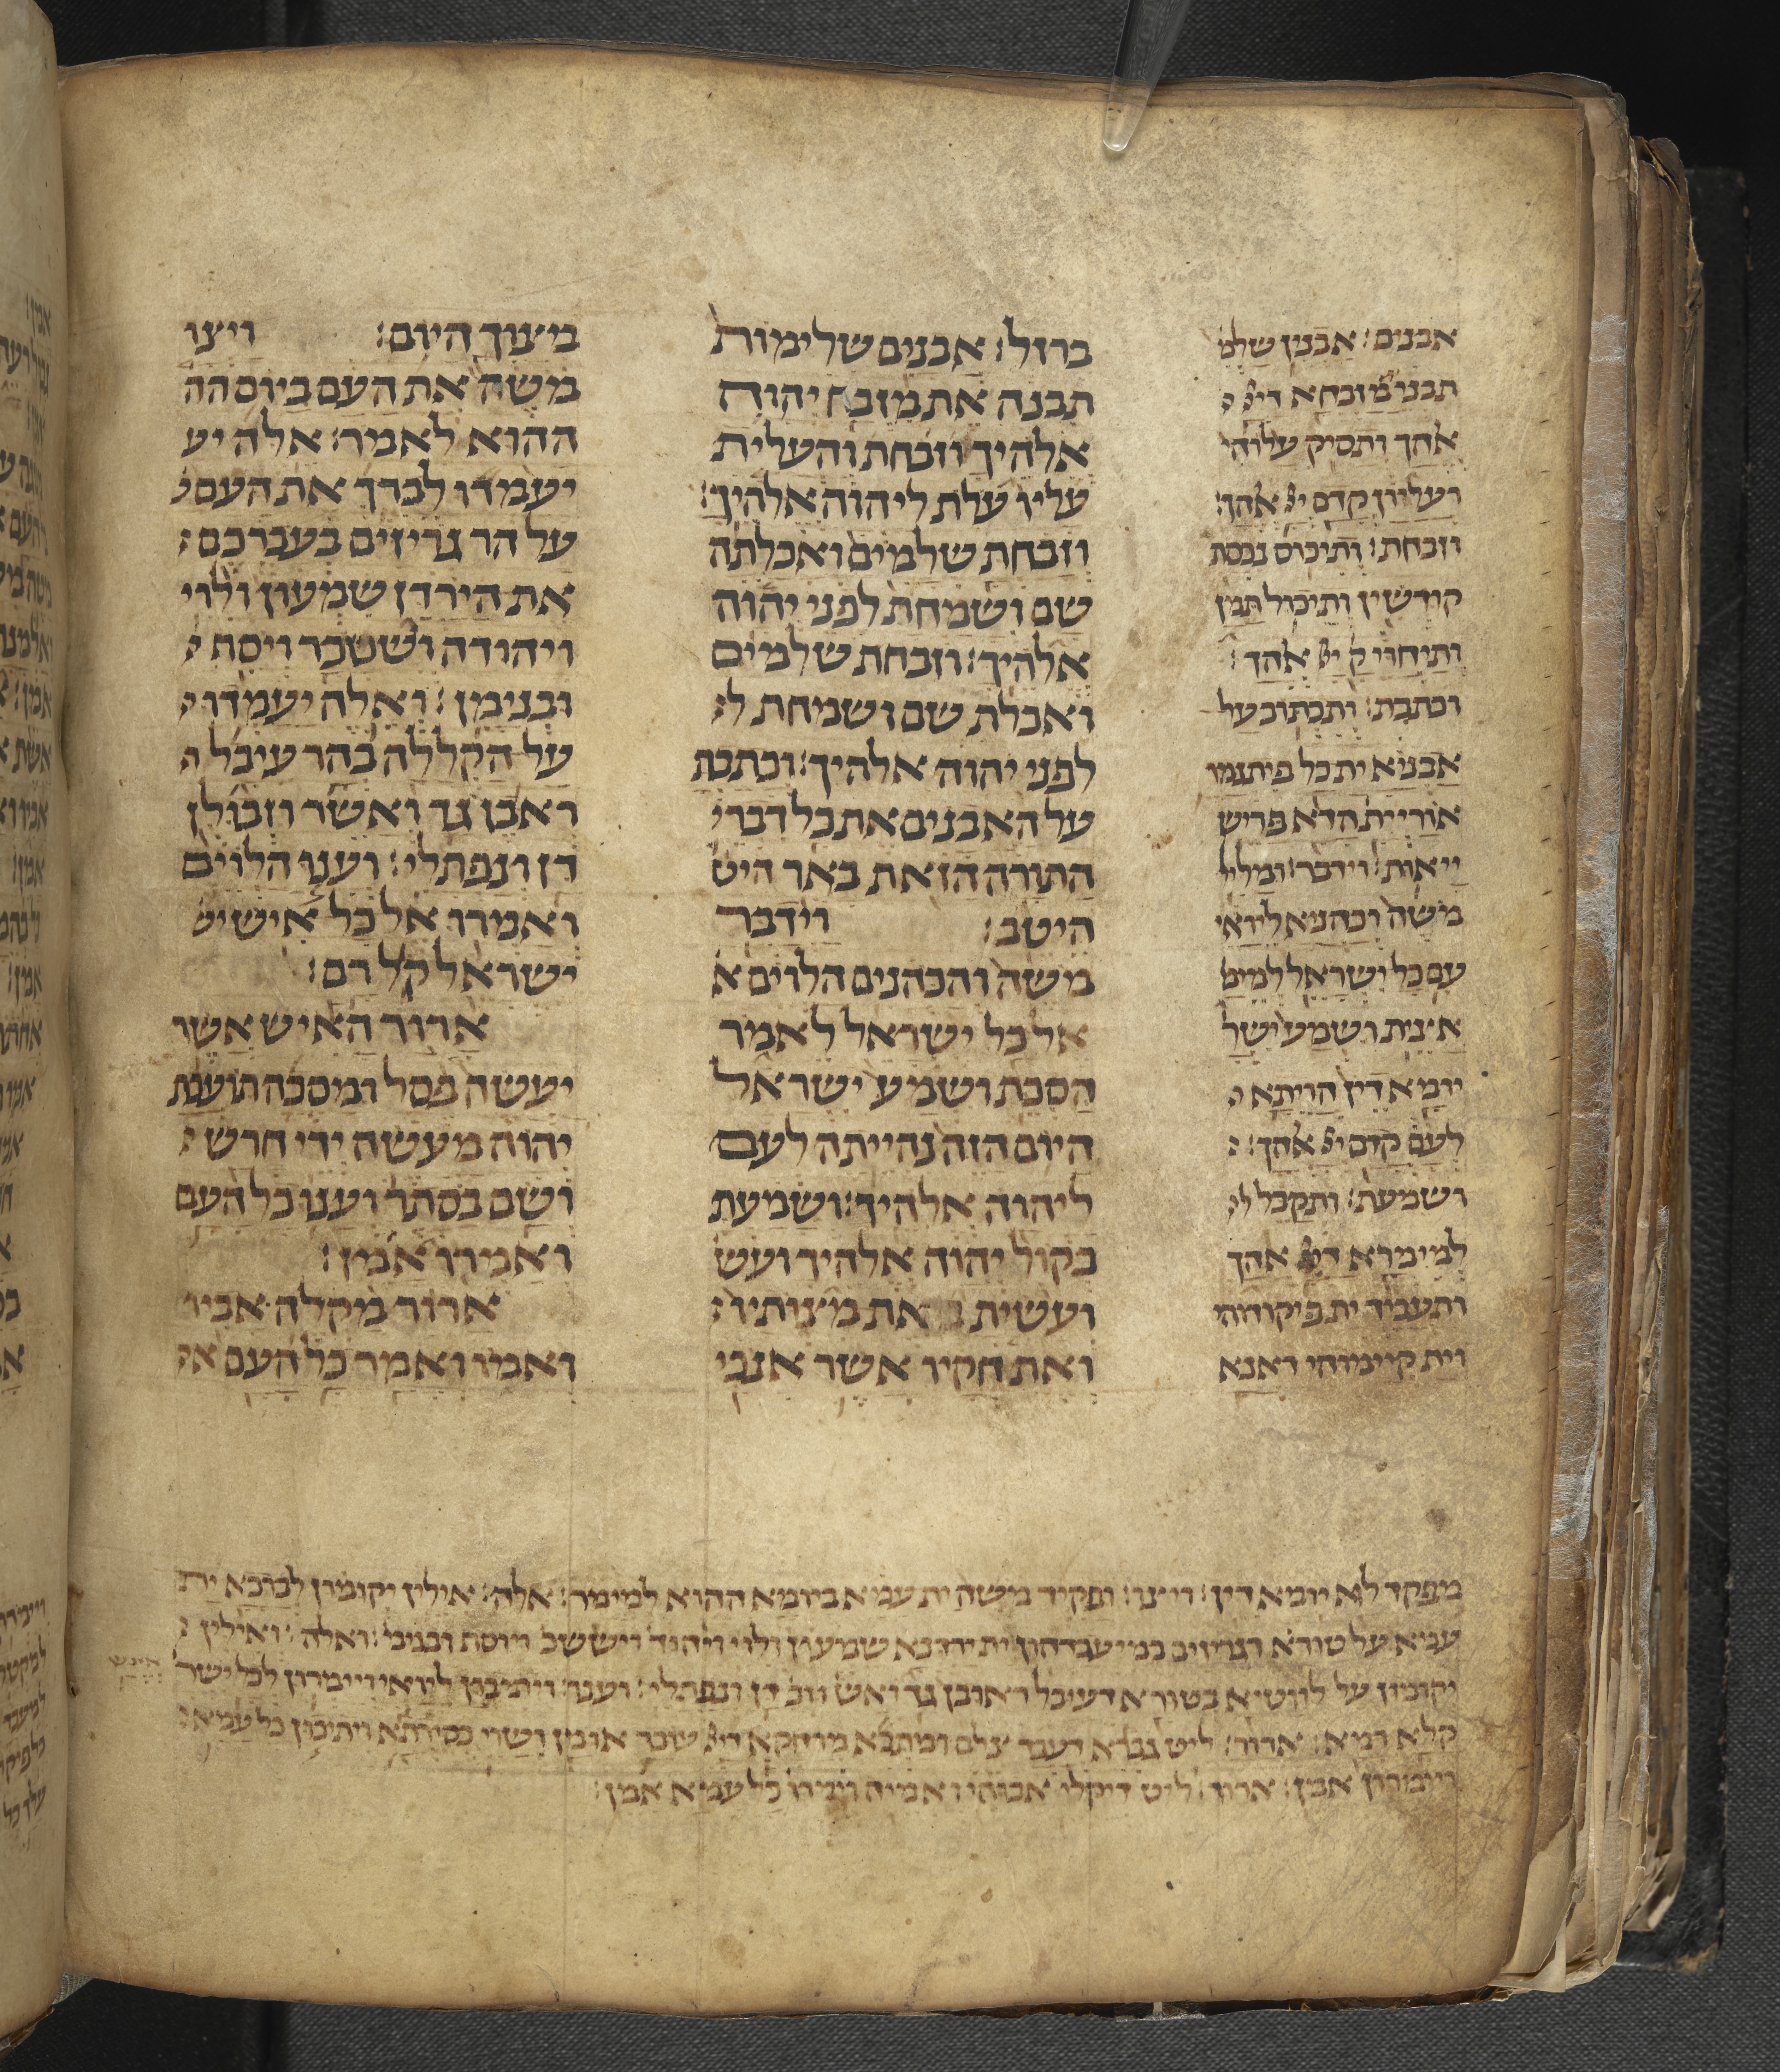 אבנים׃ אבנין שלמ
תבני מדבחא דיי
אהך ותסיק עלוהי
ועלוון קדם יי אהך׃
וזבחת׃ ותיכוס נכסת
קודשין ותיכול תמן
ותיחדי ק יי אהך׃
וכתבת׃ ותכתוב על
אבניא ית כל פיתגמי
אוריית הדא פריש
ייאות׃ וידבר׃ ומליל
משה וכהניא ליואי
עם כל ישראל למימ
אצית ושמע ישר
יומא דין הויתא
לעם קדם יי אהך׃
ושמעת׃ ותקבל ל
למימרא דיי אהך
ותעביד ית פיקודוהי
וית קיימוהי דאנא
ברזל׃ אבנים שלימות
תבנה את מזבח יהוה
אלהיך וזבחת והעלית
עליו עלת ליהוה אלהיך׃
וזבחת שלמים ואכלתה
שם ושמחת לפני יהוה
אלהיך׃ וזבחת שלמים
ואכלת שם ושמחת ל
לפני יהוה אלהיך׃ וכתבת
על האבנים את כל דברי
התורה הזאת באר היט
היטב׃ וידבר
משה והכהנים הלוים א
אל כל ישראל לאמר
הסכת ושמע ישראל
היום הזה נהייתה לעם
ליהוה אלהיך׃ ושמעת
בקול יהוה אלהיך ועש
ועשית את מצותיו
ואת חקיו אשר אנכי
מצוך היום׃ ויצו
משה את העם ביום הה
ההוא לאמר׃ אלה יע
יעמדו לברך את העם
על הר גריזים בעברכם
את הירדן שמעון ולוי
ויהודה ויששכר ויוסף
ובנימן׃ ואלה יעמדו
על הקללה בהר עיבל
ראובן גד ואשר וזבולן
דן ונפתלי׃ וענו הלוים
ואמרו אל כל איש יש
ישראל קול רם׃
ארור האיש אשר
יעשה פסל ומסכה תועבת
יהוה מעשה ידי חרש
ושם בסתר וענו כל העם
ואמרו אמן׃
ארור מקלה אביו
ואמו ואמר כל העם א
מפקד לא יומא דין׃ ויצו׃ ופקיד משה ית עמא ביומא ההוא למימר׃ אלה׃ אילין יקומון לברכא ית
עמא על טורא דגריזים במיעברכון ית ירדנא שמעון ולוי ויהוד ויששכ ויוסף ובנימ׃ ואלה׃ ואילין
יקומון על לווטיא בטורא דעיבל ראובן גד ואש וזב דן ונפתלי׃ וענו׃ ויתיבון ליואי ויימרון לכל ישר
קלא רמא׃ ארור׃ ליט גברא דעבד צלם ומתכא מרחקא דיי עובד אומן ושוי בסיתרא ויתיבון כל עמא
ויימרון אמן׃ ארור׃ ליט דיקלי אבוהי ואמיה ויימר כל עמא אמן׃